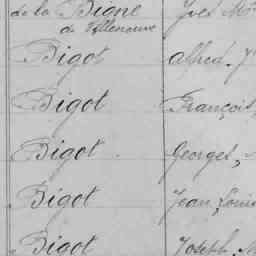 de la Bigne Yves M
de Villeneuve
Bigot Alfred. J
Bigot François,
Bigot Georges,
Bigot Jean Louis
Bigot Joseph, M